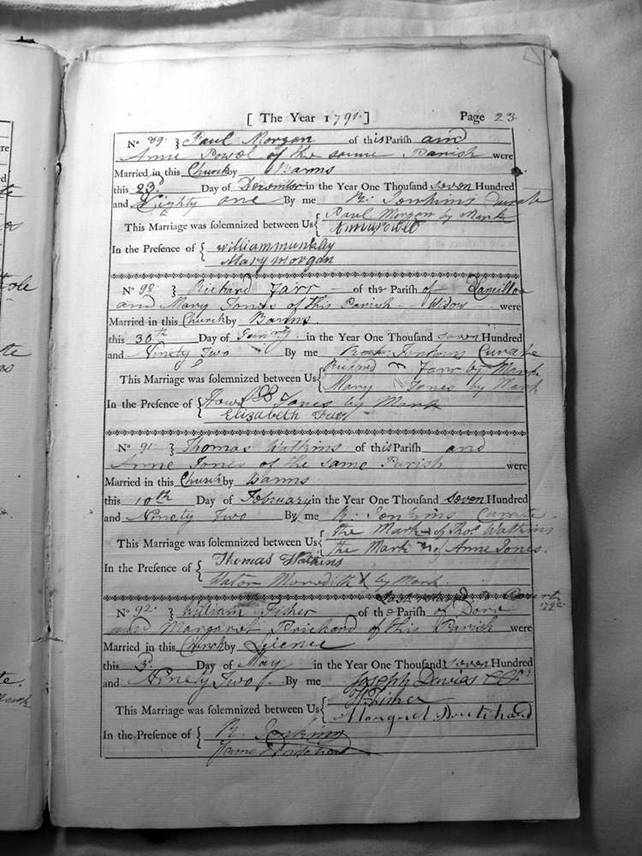 [ The Year 1791. ] Page 23
No 89. } Paul Morgan of this Parish and
Anne Powel of the same Parish were
Married in this Church by Banns
this 23d Day of December in the Year One Thousand seven Hundred
and Eighty one By me R: Jenkins Curate
This Marriage was solemnized between Us { Paul Morgan by Mark
Ann Powell
In the Presence of { william
Mary Morgan
No 90. } Richard Farr of the Parish of
and Mary Jones of this Parish were
Married in this Church by Banns
this 30th Day of in the Year One Thousand seven Hundred
and Ninety Two By me Jenkins Curate
This Marriage was solemnized between Us { Richard Farr by Mark
Mary Jones by Mark
In the Presence of { Jones by Mark
Elizabeth
No 91 } Thomas Watkins of this Parish and
Anne Jones of the same Parish were
Married in this Church by Banns
this 10th Day of February in the Year One Thousand seven Hundred
and Ninety Two By me R: Jenkins Curate
This Marriage was solemnized between Us { the Mark of Thos Watkins
the Mark of Anne Jones.
In the Presence of { Thomas Watkins
Meredith X by Mark
1792
No 92. } William Fisher of the Parish of Dore
and Margaret Prichard of this Parish were
Married in this Church by Licence
this 3d Day of May in the Year One Thousand seven Hundred
and Ninety Two By me Joseph Davies
This Marriage was solemnized between Us { W Fisher
Margret Pritchard
In the Presence of { R. Jenkins